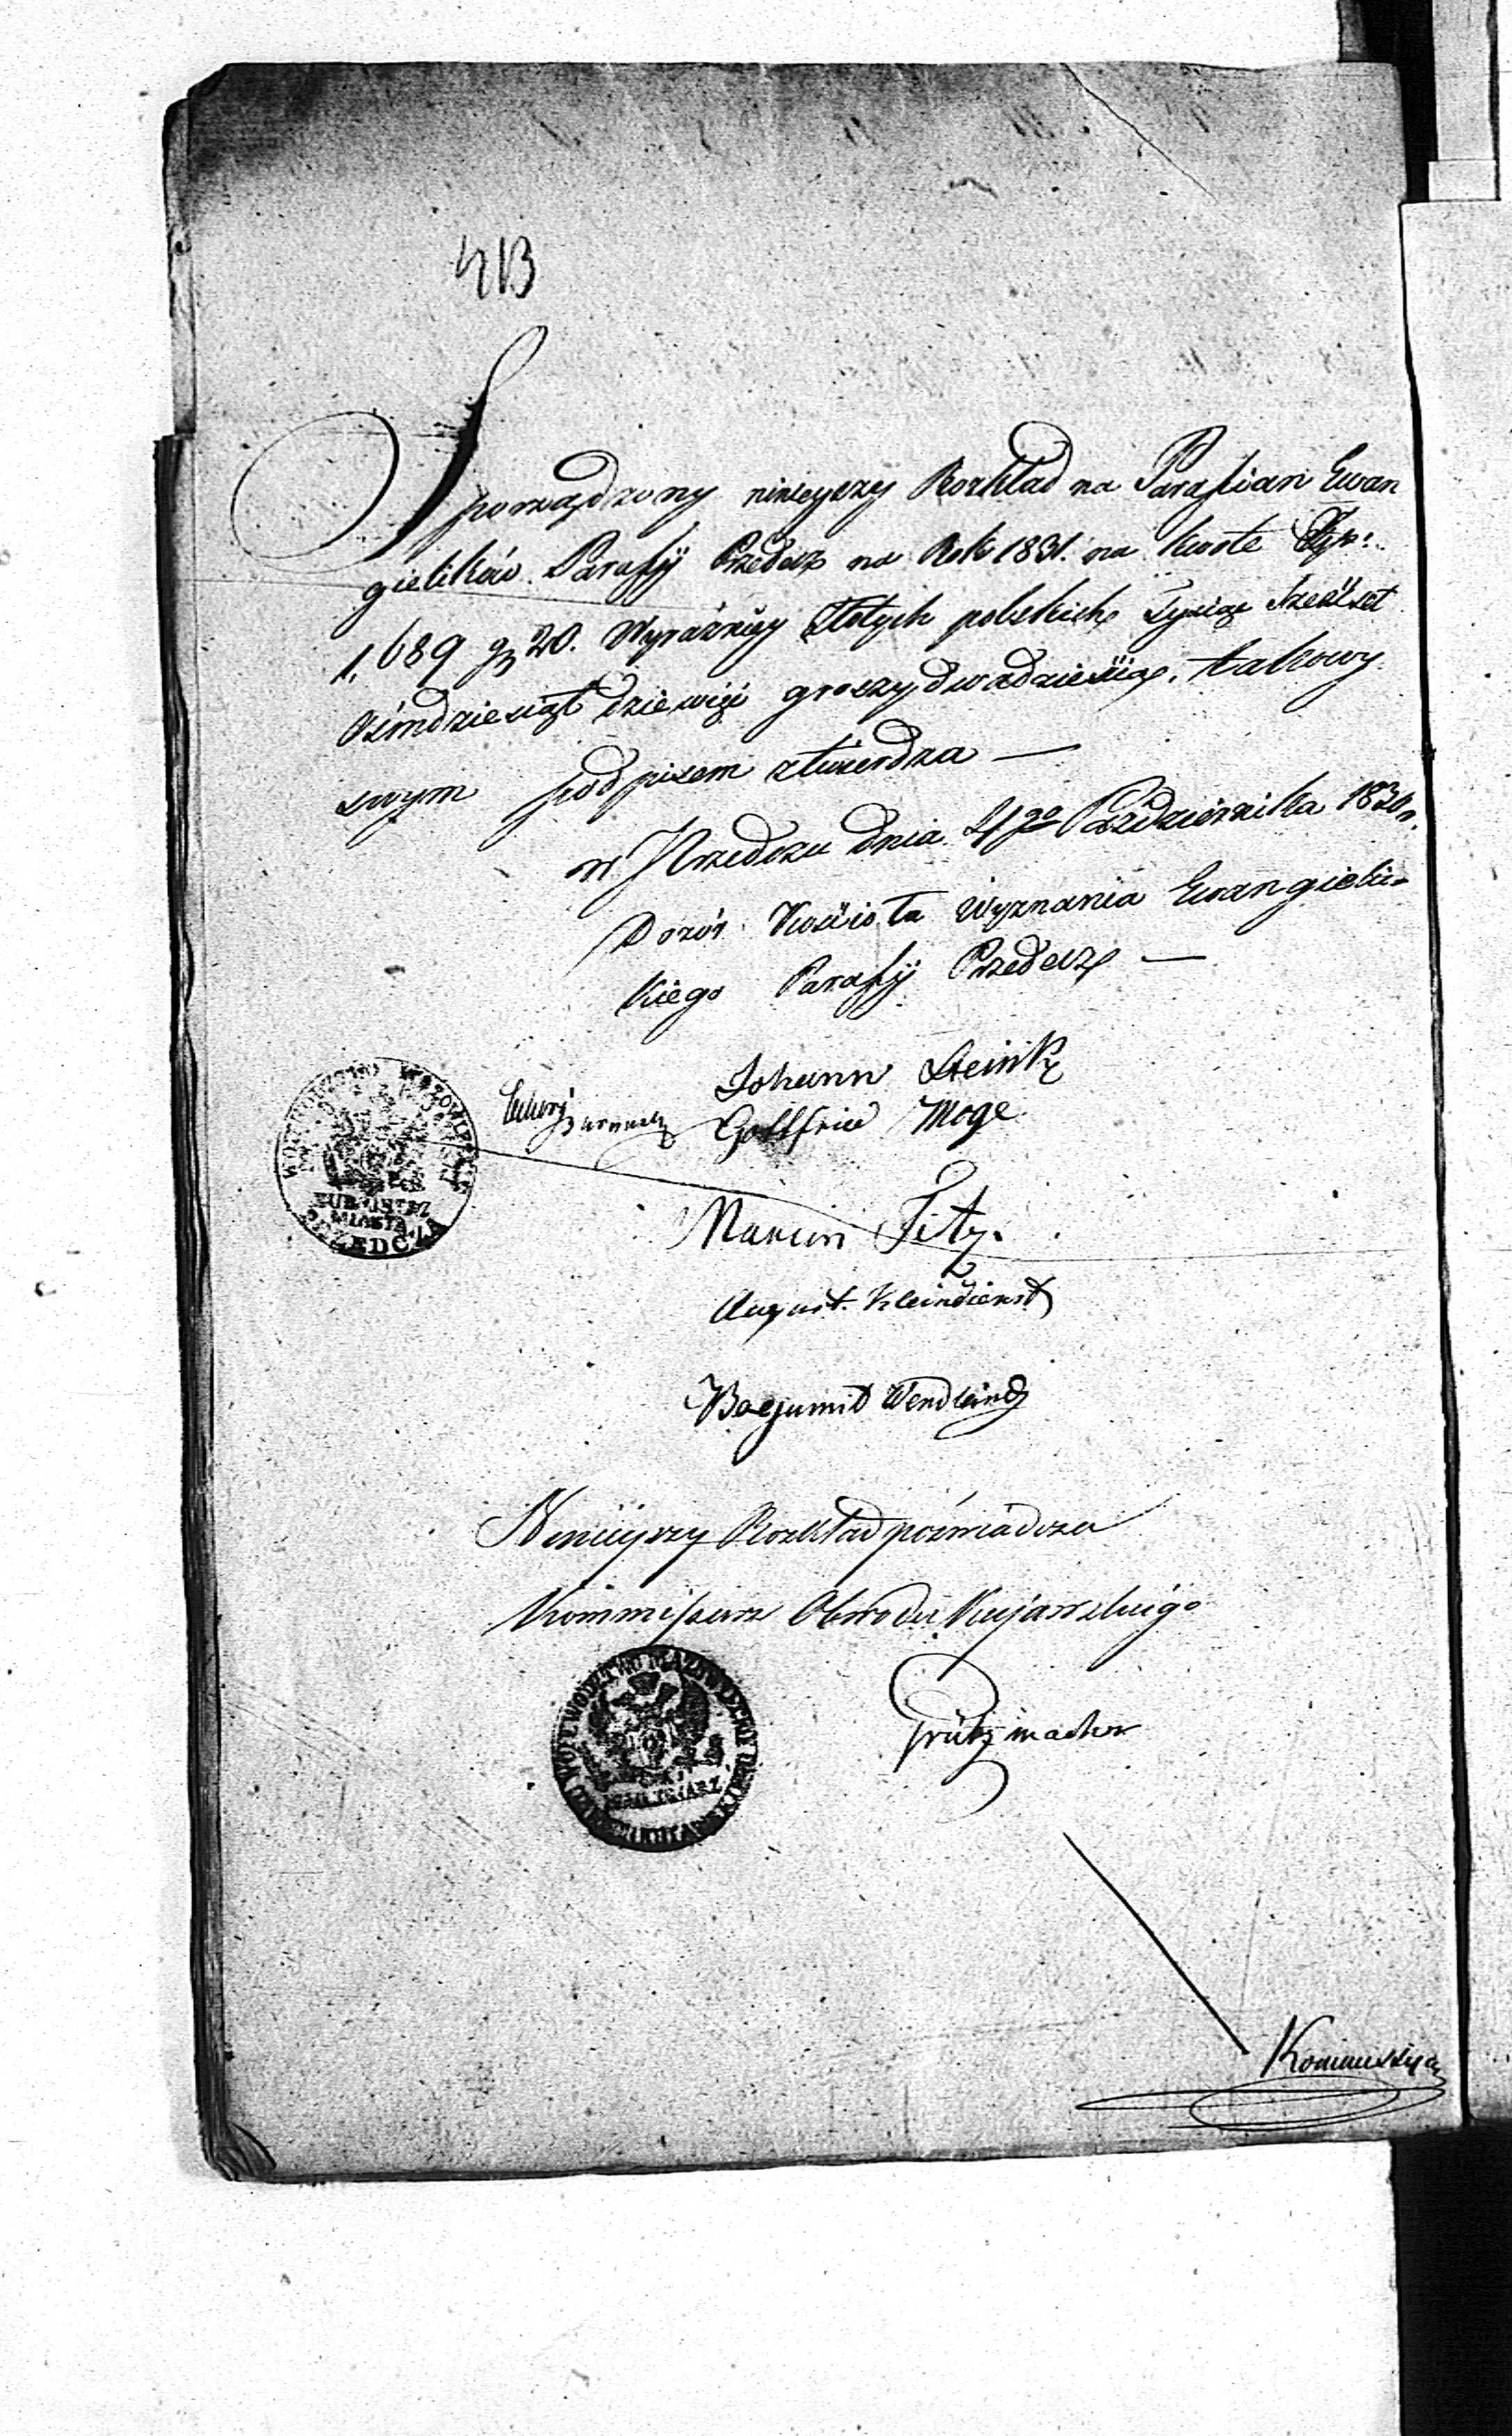 413
Sporządzony ninieyszy Rozkład na Parafian Ewan
gielików Parafij Przedecz na Rok 1831. na kwotę Złp:
1,689 gr 20. Wyraźniey Złotych polskich Tysiąc Sześćset
Ośmdziesiąt dziewięć groszy dwadzieścia, takowy
swym podpisem ztwierdza —
w Przedczu dnia 4go Października 1830 r.
Dozór Kościoła Wyznania Ewangielic-
kiego Parafij Przedecz —
Johann Steinke
Gottfried Moge
Marcin Fitz.
August. Kleindienst
Bogumił Wendland
Ninieyszy Rozkład poświadcza
Kommissarz Obwodu Kujawskiego
WOJEWODZTWO MAZOWIECKIE
BURMISTRZ
MIASTA
PRZEDCZA
Grützmacher
WOJEWODZTWO MAZOWIECKIE